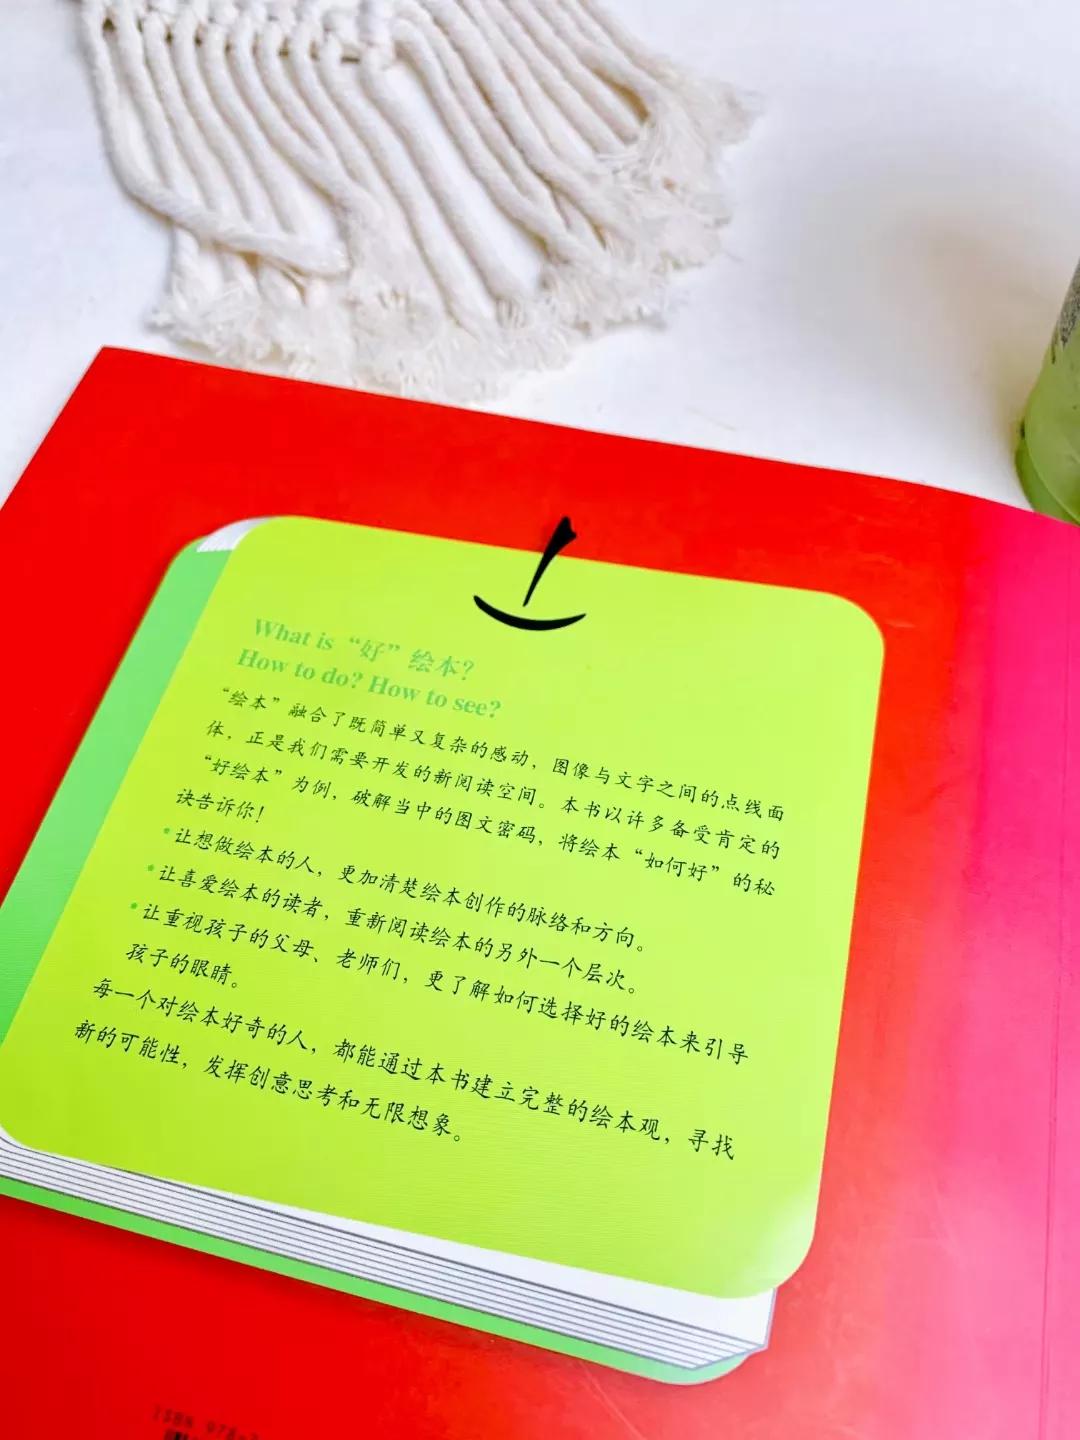 What is “好”绘本?
How to do? How to see?
“绘本”融合了既简单又复杂的感动，图像与文字之间的点线面
体，正是我们需要开发的新阅读空间。本书以许多备受肯定的
“好绘本”为例，破解当中的图文密码，将绘本“如何好”的秘
诀告诉你！
•让想做绘本的人，更加清楚绘本创作的脉络和方向。
•让喜爱绘本的读者，重新阅读绘本的另外一个层次。
•让重视孩子的父母、老师们，更了解如何选择好的绘本来引导
孩子的眼睛。
每一个对绘本好奇的人，都能通过本书建立完整的绘本观，寻找
新的可能性，发挥创意思考和无限想象。
ISBN 978-7